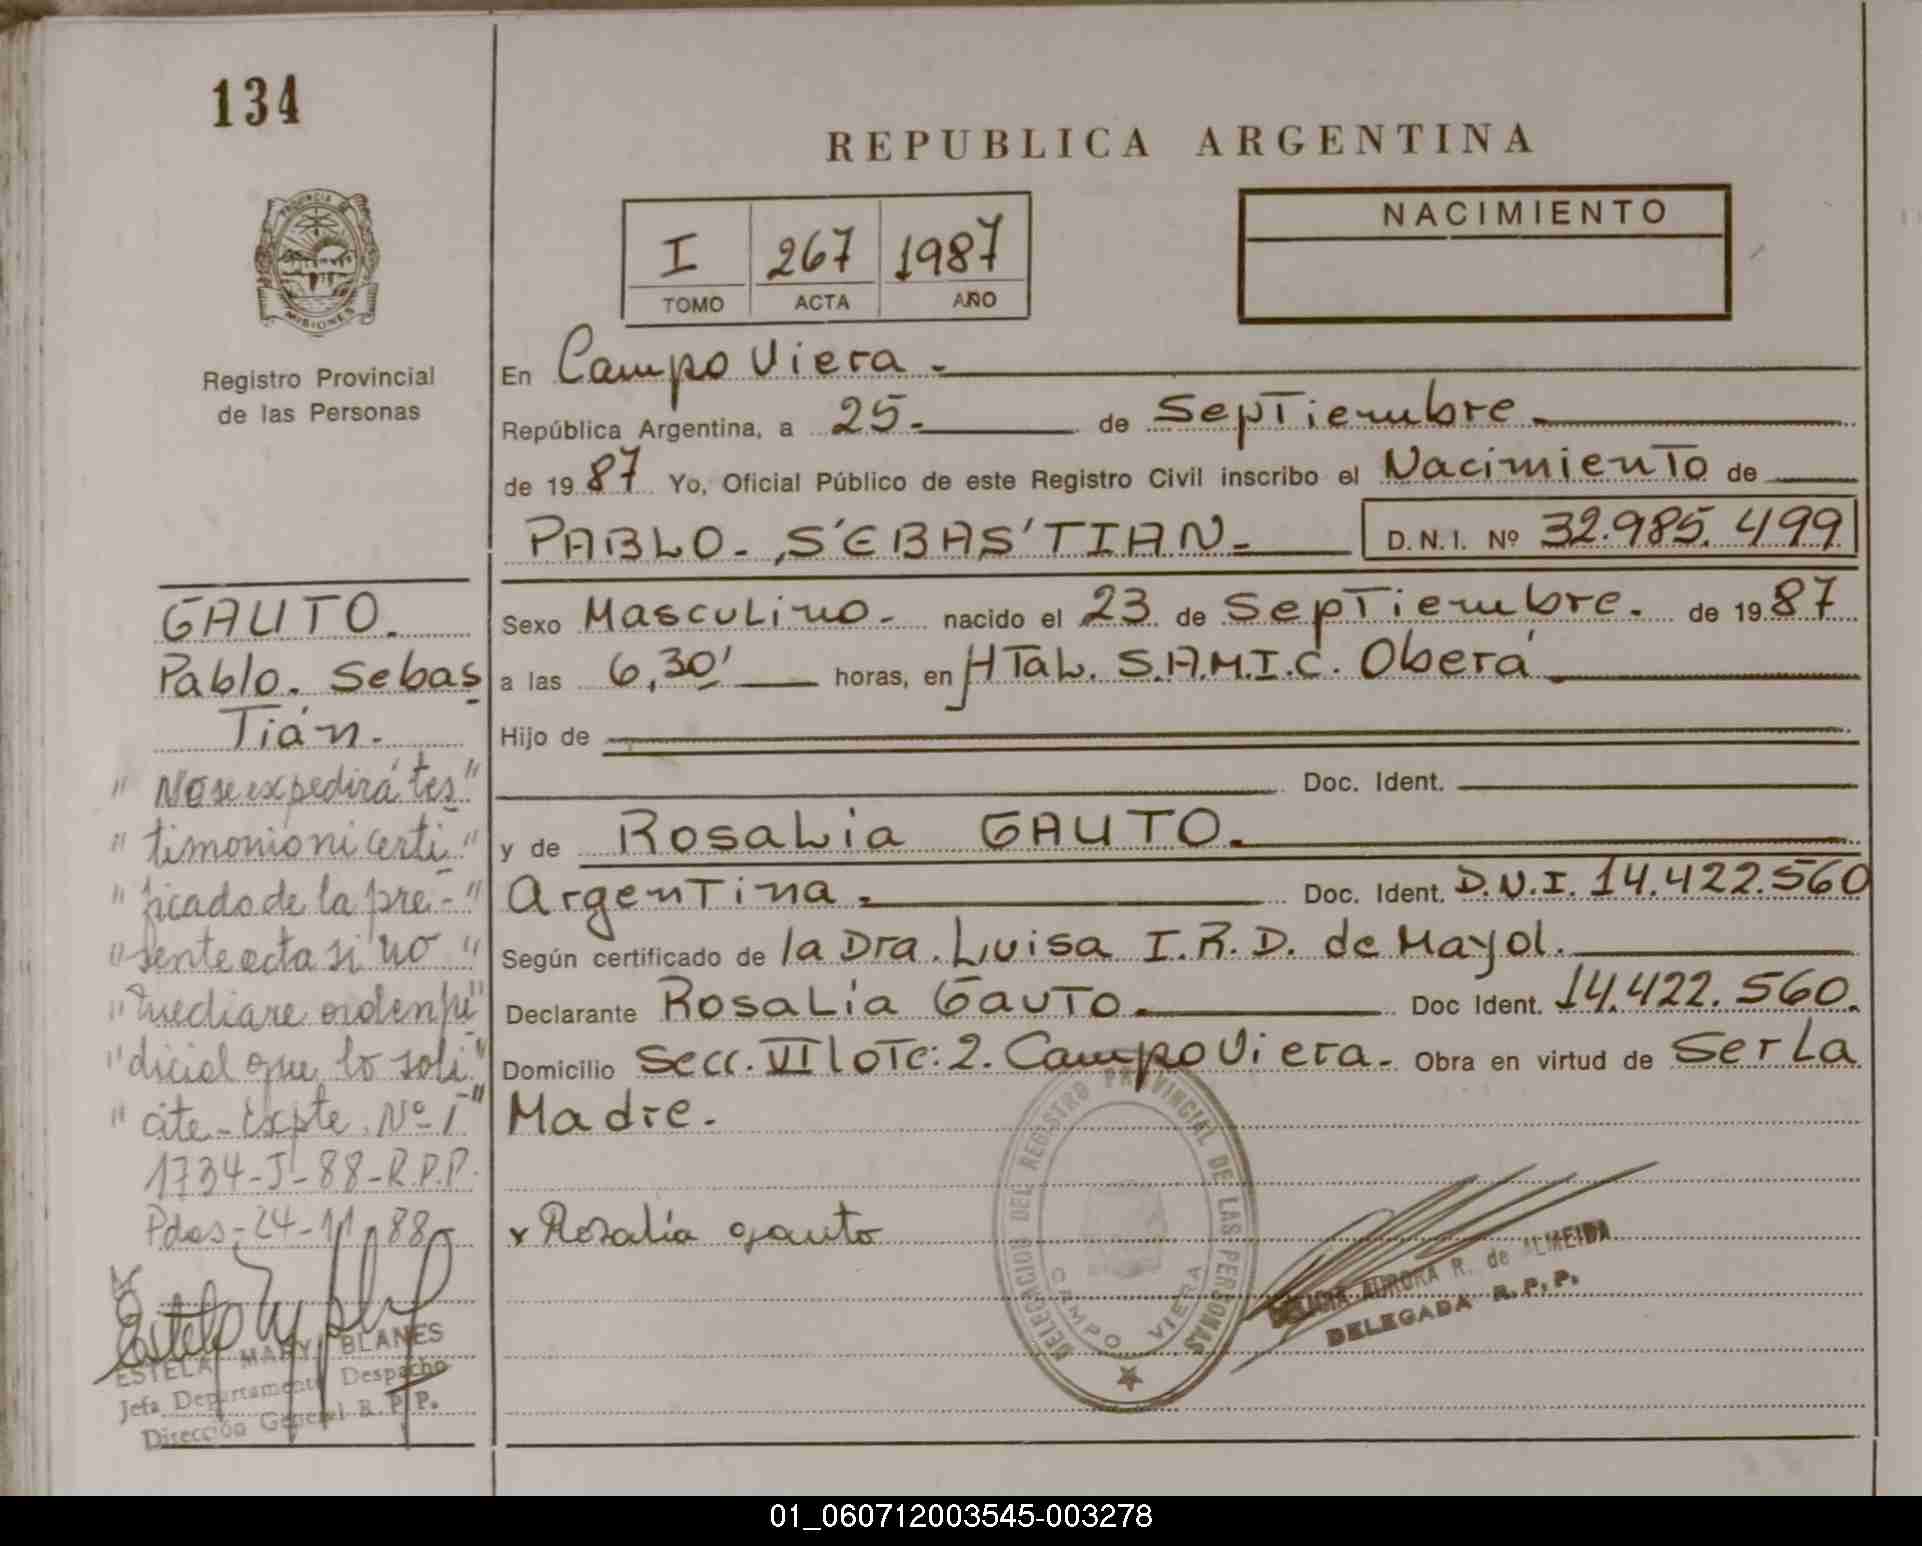 134
REPUBLICA ARGENTINA
PROVINCIA DE
MISIONES
I 267 1987
TOMO ACTA AÑO
NACIMIENTO
Registro Provincial
de las Personas
En Campo Viera.
República Argentina, a 25. de Septiembre.
de 1987 Yo, Oficial Público de este Registro Civil inscribo el Nacimiento de
PABLO. SEBASTIAN. D.N.I. Nº 32.985.499
Sexo Masculino. nacido el 23 de Septiembre. de 1987
a las 6,30' horas, en HTal. S.A.M.I.C. Oberá
Hijo de
Doc. Ident.
y de Rosalia GAUTO.
Argentina. Doc. Ident. D.N.I. 14.422.560
Según certificado de la Dra. Luisa I.R.D. de Mayol.
Declarante Rosalía Gauto. Doc Ident. 14.422.560.
Domicilio Secc. VI lote: 2. Campo Viera. Obra en virtud de Ser La
Madre.
x Rosalía gauto
DELEGACION DEL REGISTRO PROVINCIAL DE LAS PERSONAS
CAMPO VIERA
AURORA R. de ALMEIDA
DELEGADA R.P.P.
GAUTO.
Pablo. Sebas
Tián.
" No se expedirá tes "
" timonio ni certi "
" ficado de la pre- "
" sente acta si no "
" mediare orden ju "
" dicial que lo soli "
" cite - Expte. Nº 1 "
1734-J-88-R.P.P.
Pdas-24-11-88
ESTELA MARY BLANES
Jefa Departamento Despacho
Dirección General R.P.P.
01_060712003545-003278